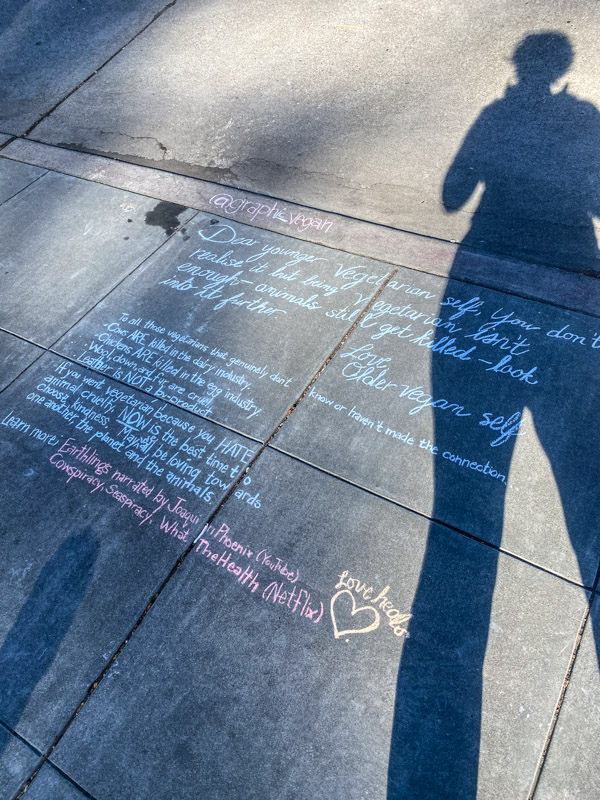 @graphicvegan
Dear younger Vegetarian self, You don't
realise it but being Vegetarian isn't
enough- animals still get killed -look
into it further.
Love,
Older Vegan self
To all those vegetarians that genuinely don't know or haven't made the connection.
· Cows ARE killed in the dairy industry
· Chickens ARE killed in the egg industry
· Wool, down and fur are cruel
· Leather is NOT a by-product
If you went vegetarian because you HATE
animal cruelty, NOW is the best time to
choose kindness. Always be loving towards
one another, the planet and the animals
Learn more: Earthlings narrated by Joaquin Phoenix (YouTube)
Conspiracy, Seaspiracy, What The Health (Netflix)
Love heals